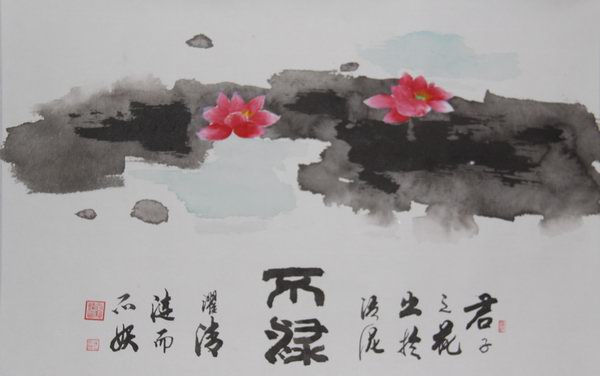 君子
之花
出於
淤泥
不染
濯清
漣而
不妖